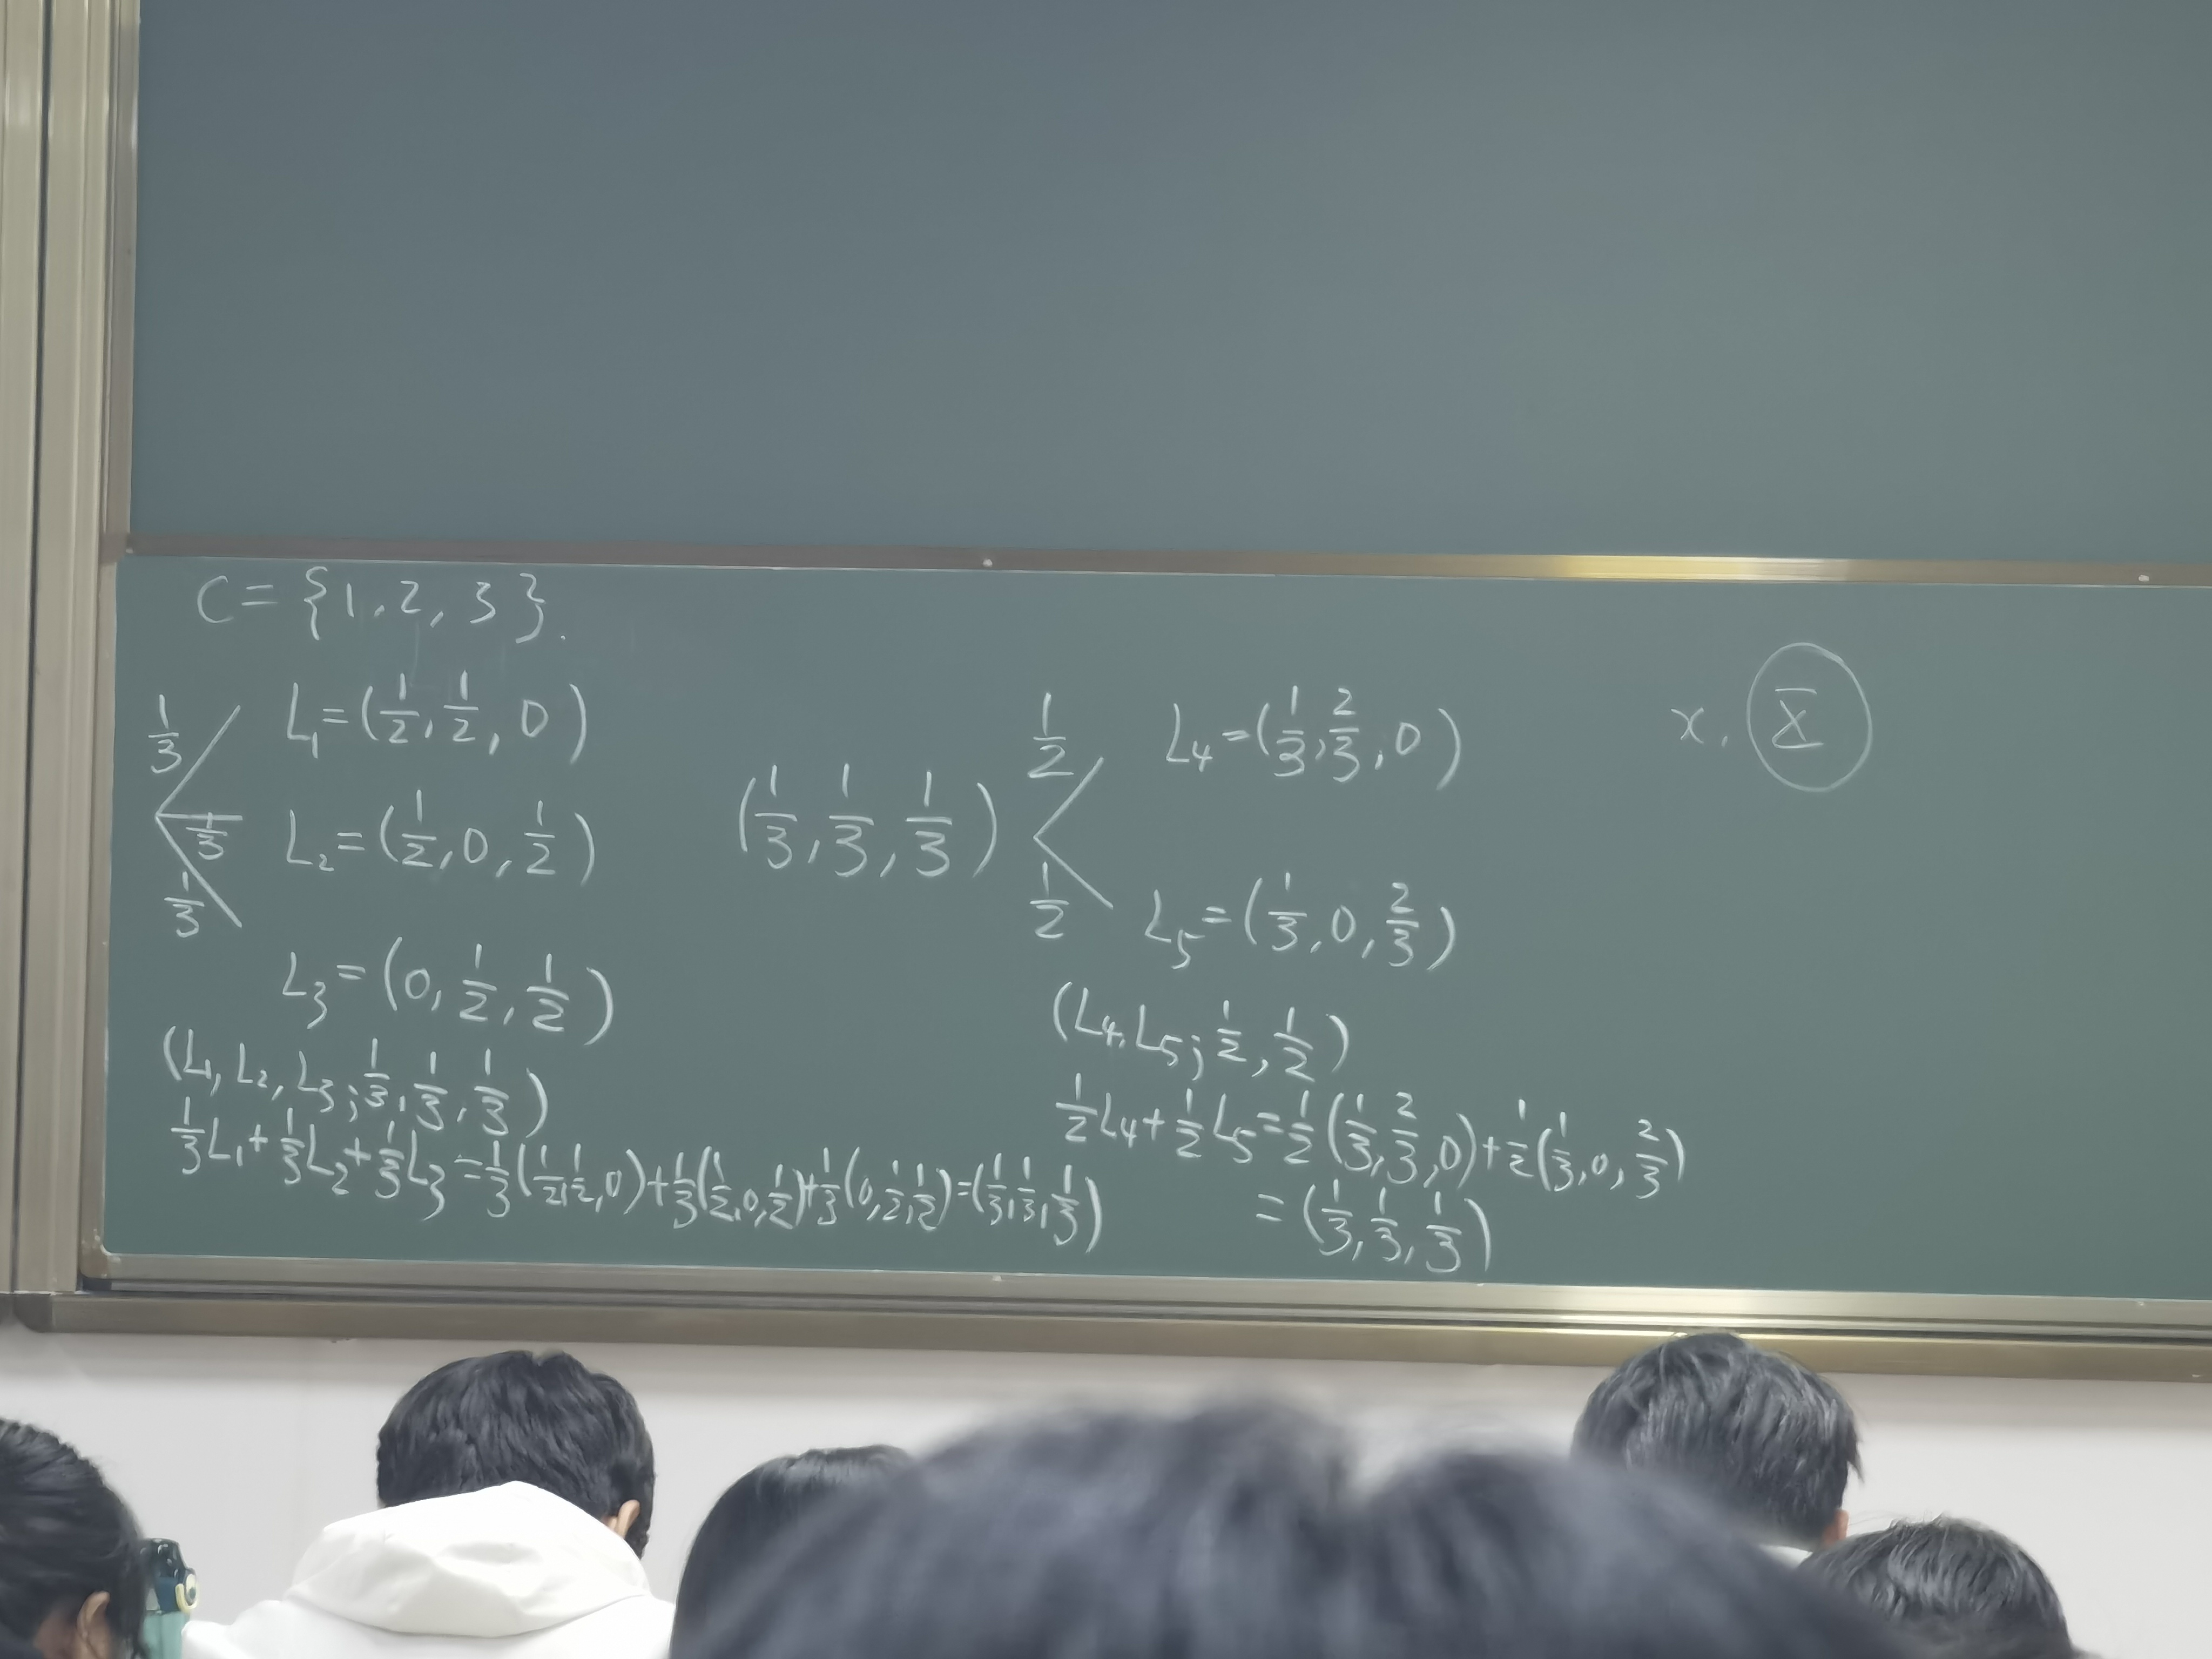 C = {1, 2, 3}.
1/3
L₁ = (1/2, 1/2, 0)
1/3
L₂ = (1/2, 0, 1/2)
1/3
L₃ = (0, 1/2, 1/2)
(L₁, L₂, L₃; 1/3, 1/3, 1/3)
1/3 L₁ + 1/3 L₂ + 1/3 L₃ = 1/3 (1/2, 1/2, 0) + 1/3 (1/2, 0, 1/2) + 1/3 (0, 1/2, 1/2) = (1/3, 1/3, 1/3)
(1/3, 1/3, 1/3)
1/2
L₄ = (1/3, 2/3, 0)
1/2
L₅ = (1/3, 0, 2/3)
(L₄, L₅; 1/2, 1/2)
1/2 L₄ + 1/2 L₅ = 1/2 (1/3, 2/3, 0) + 1/2 (1/3, 0, 2/3)
= (1/3, 1/3, 1/3)
x, X